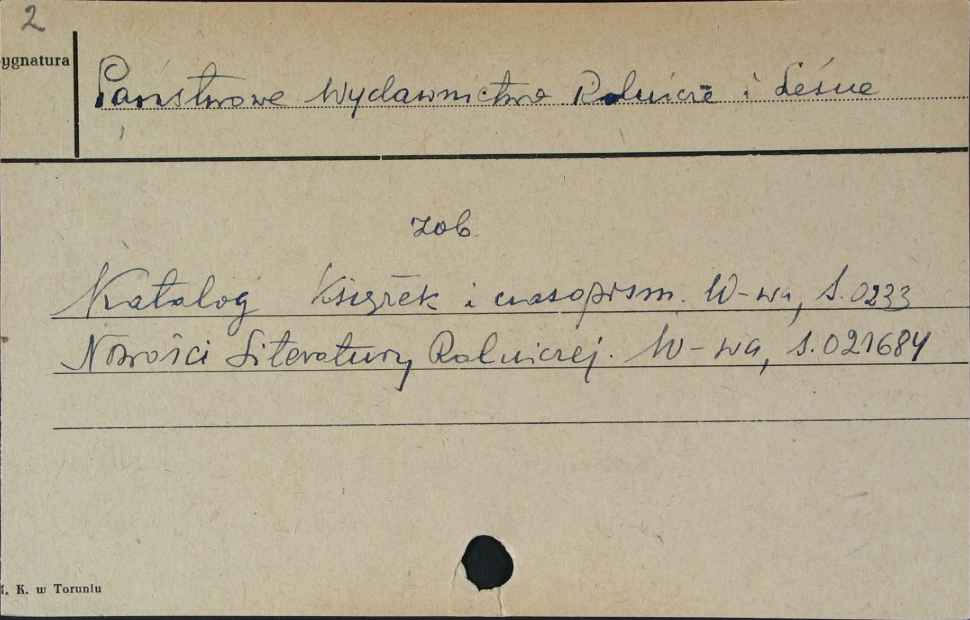 2
ygnatura
Państwowe Wydawnictwo Rolnicze i Leśne
zob.
Katalog Książek i czasopism. W-wa, S.0233
Nowości Literatury Rolniczej. W-wa, S.021684
K. w Toruniu